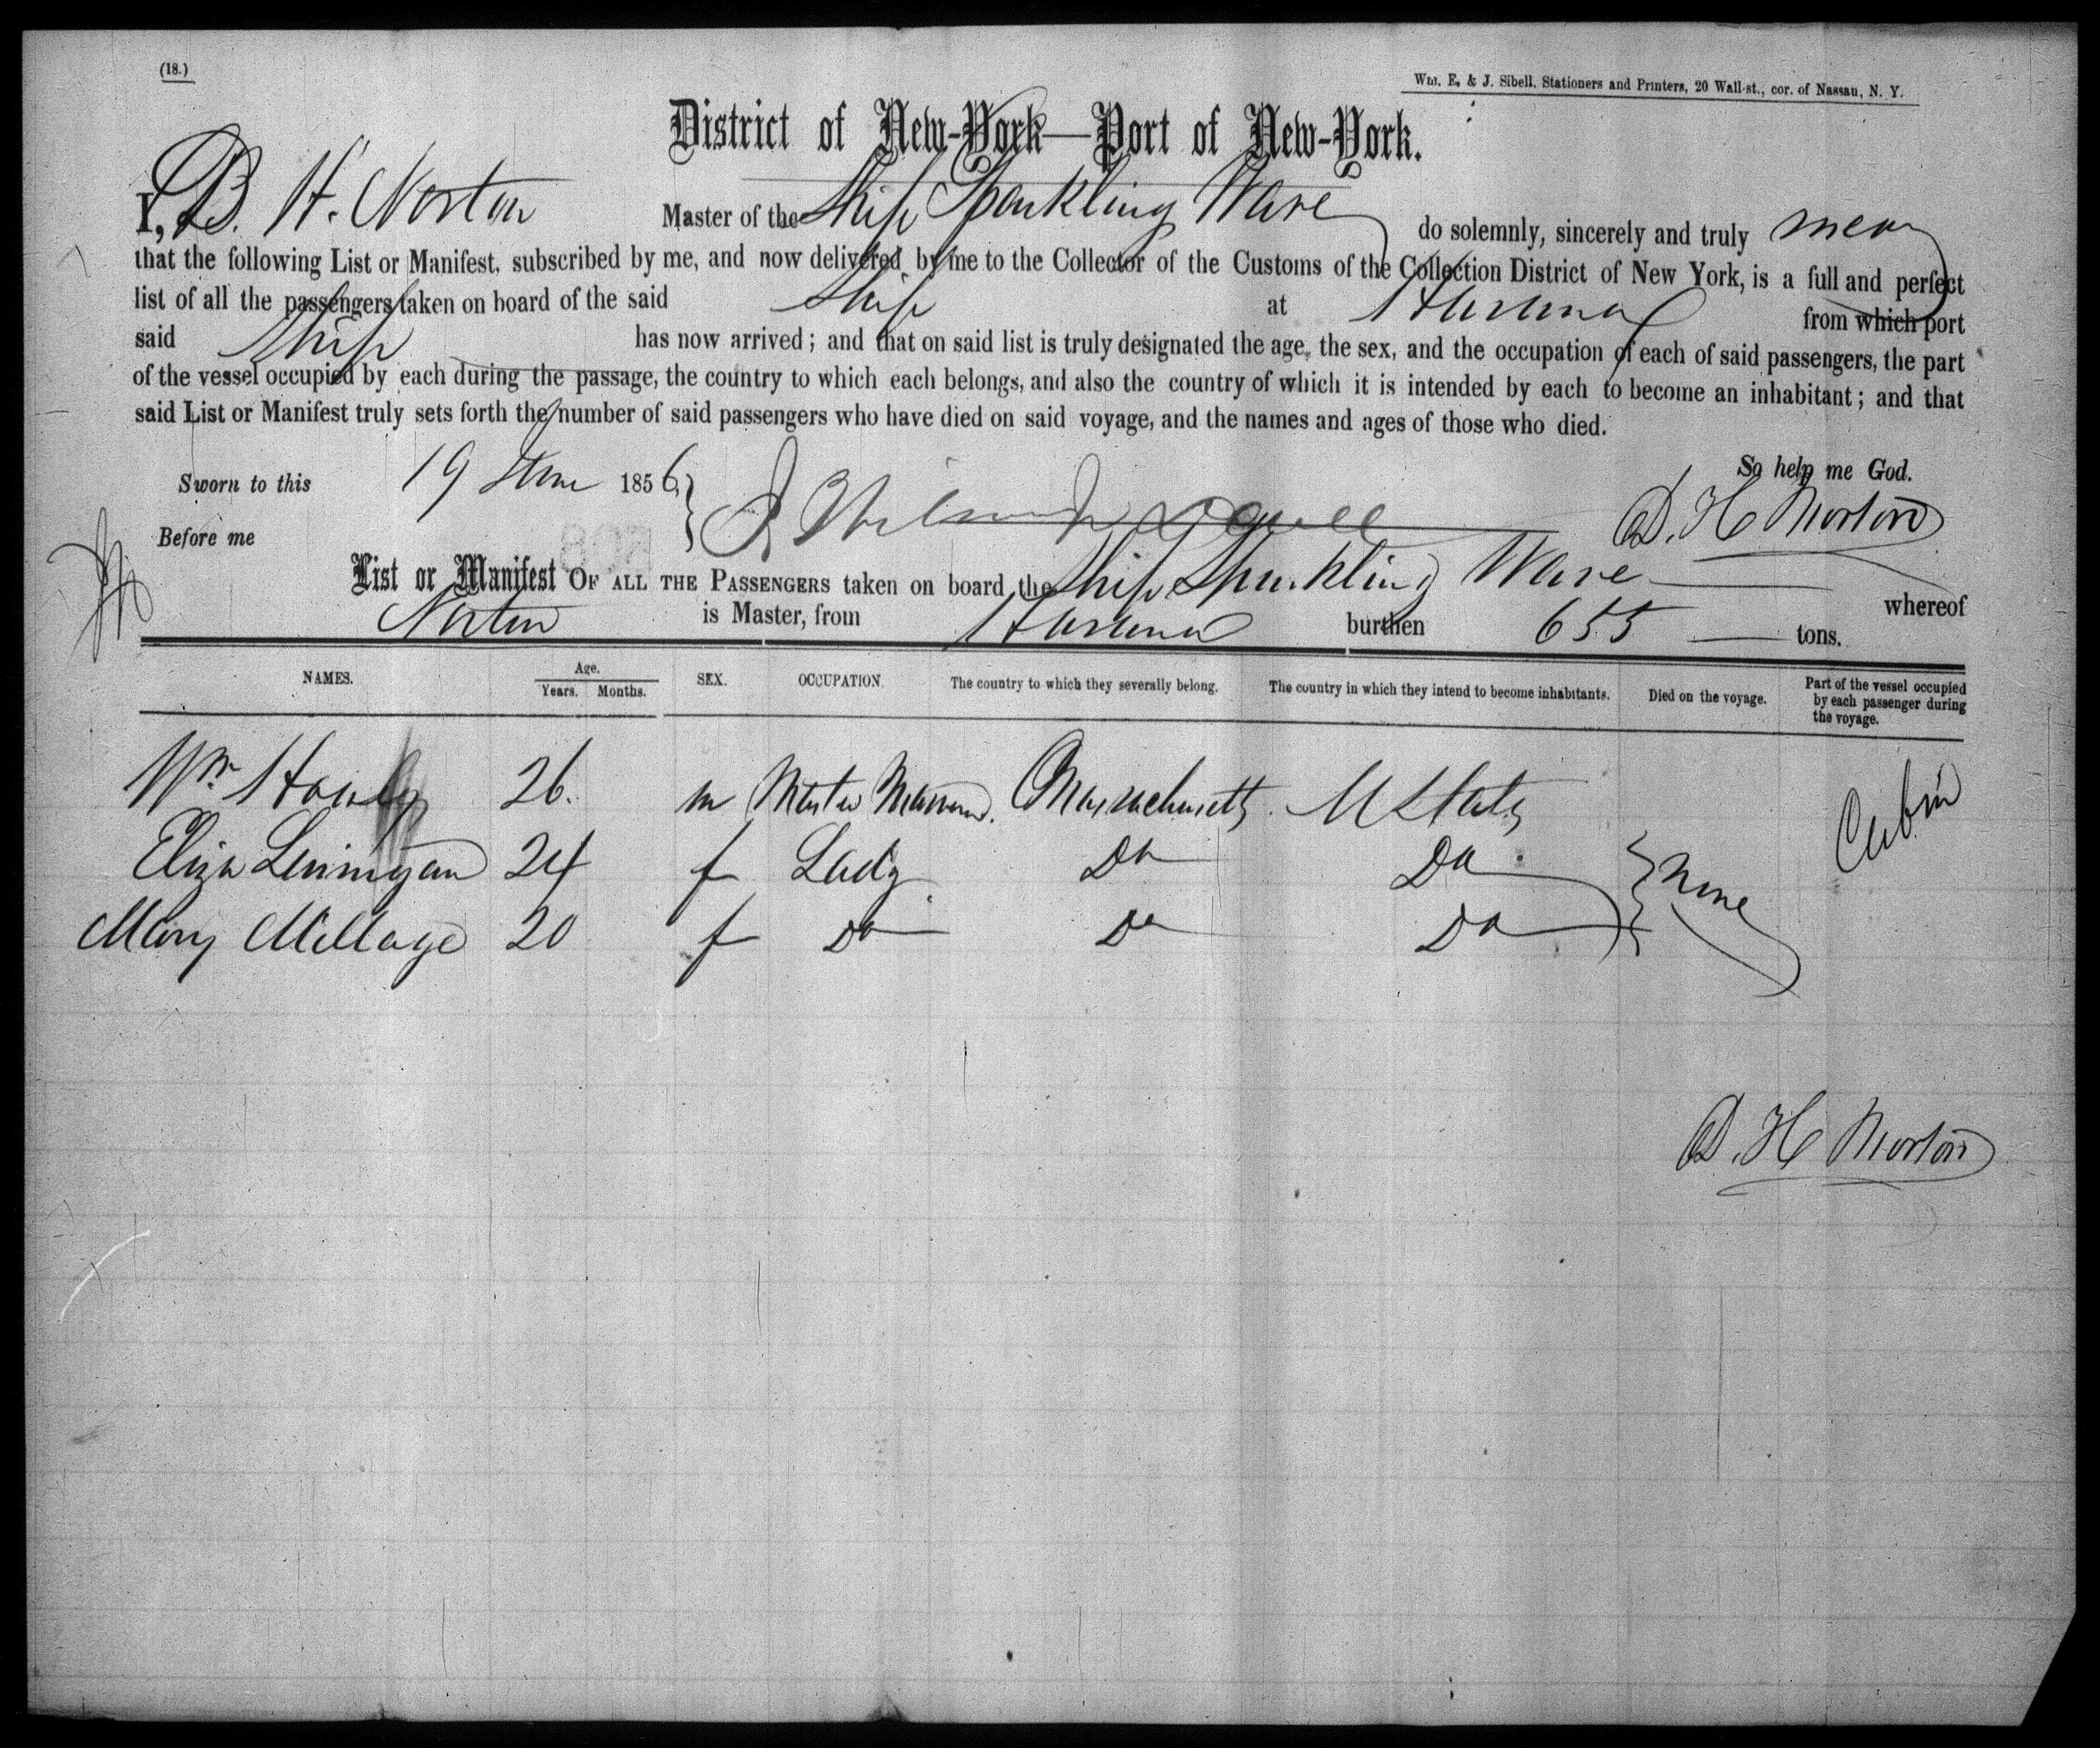 (18.)
Wm. E. & J. Sibell, Stationers and Printers, 20 Wall-st., cor. of Nassau, N. Y.
District of New-York—Port of New-York.
I, B. H. Norton Master of the Ship Sparkling Wave do solemnly, sincerely and truly swear
that the following List or Manifest, subscribed by me, and now delivered by me to the Collector of the Customs of the Collection District of New York, is a full and perfect
list of all the passengers taken on board of the said Ship at Havana from which port
said Ship has now arrived; and that on said list is truly designated the age, the sex, and the occupation of each of said passengers, the part
of the vessel occupied by each during the passage, the country to which each belongs, and also the country of which it is intended by each to become an inhabitant; and that
said List or Manifest truly sets forth the number of said passengers who have died on said voyage, and the names and ages of those who died.
So help me God.
Sworn to this 19 June 1856
D. H Norton
Before me
List or Manifest OF ALL THE PASSENGERS taken on board the Ship Sparkling Wave whereof
Norton is Master, from Havana burthen 655 tons.
NAMES. Age. Years. Months. SEX. OCCUPATION. The country to which they severally belong. The country in which they intend to become inhabitants. Died on the voyage. Part of the vessel occupied by each passenger during the voyage.
Wm 26. m Master Mariner. Massachusetts. U States Cabin
Eliza 24 f Lady Do Do none
Mary Millage 20 f Do Do Do
D. H Norton